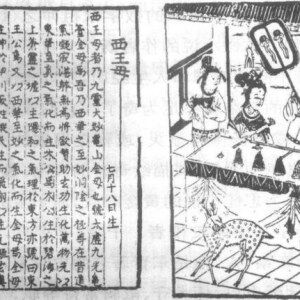 西王母
七月十八日生
西王母者乃九靈太妙龜山金母也號太虛九光龜
臺金母乃西華之至妙洞陰之極尊在昔道
氣凝寂湛體無為將欲贊助玄功生化萬物先以
東華至真之氣化而生木公焉木公生於碧海之
上蒼靈之墟以主陽和之氣理於東方亦號曰東
王公焉又以西華至妙之氣化而生金母焉金母
生於神州伊川厥姓緱氏生而飛翔